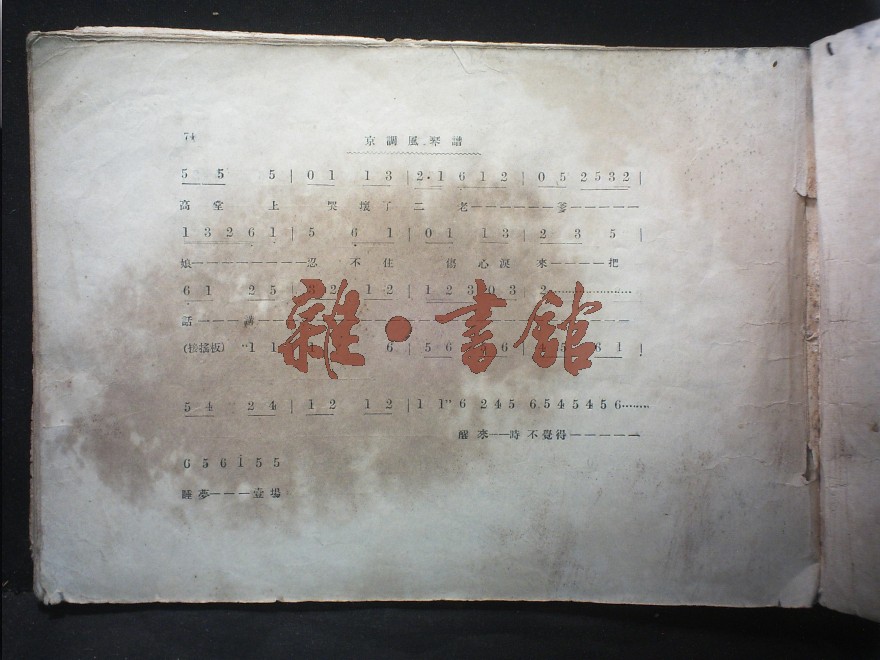 74
京調風琴譜
5 5 5 | 0 1 1 3 | 2·1 6 1 2 | 0 5 2 5 3 2 |
高堂上 哭壞了二老—————爹————
1 3 2 6 1 | 5 6 1 | 0 1 1 3 | 2 3 5 |
娘————————忍不住 傷心淚來————把
6 1 2 5 | 3 2 1 2 | 1 2 3 0 3 | 2…………………
話
(接搖板) "1 1
雜·書館
5 4 2 4 | 1 2 1 2 | 1 1" 6 2 4 5 6 5 4 5 4 5 6………
醒來——時不覺得—————
6 5 6 1 5 5
睡夢———壹場